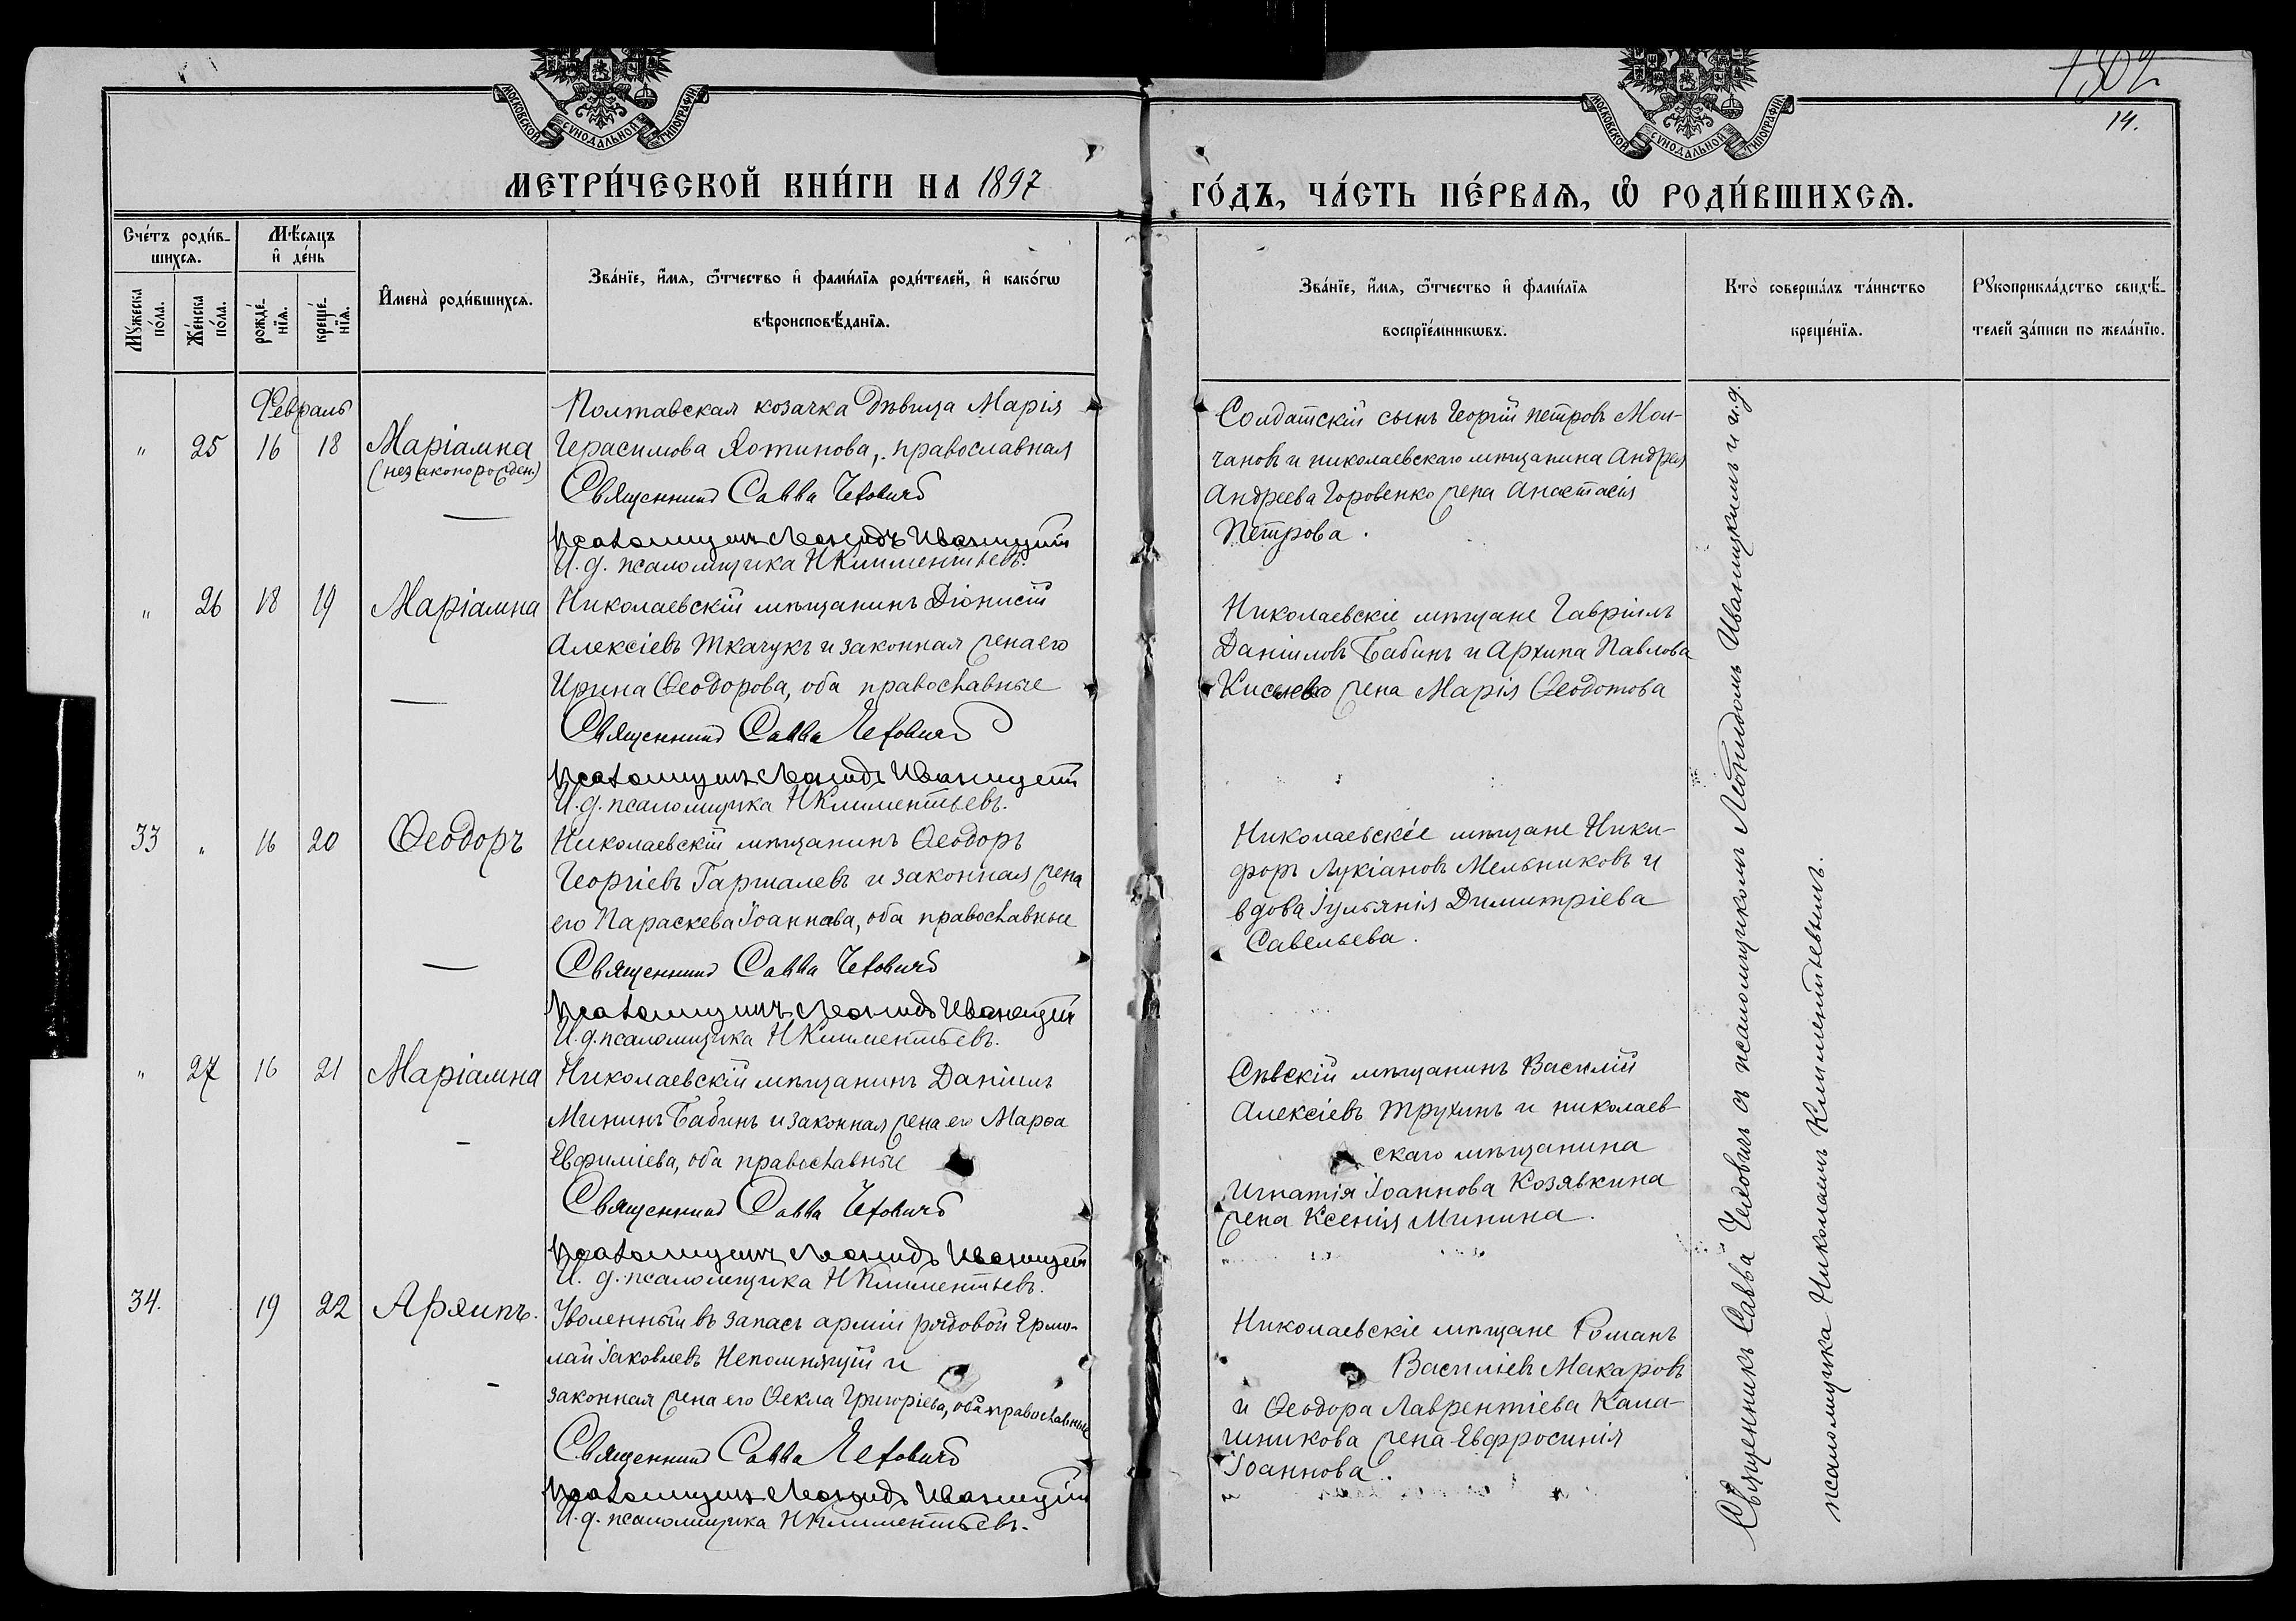 1302
14.
МОСКОВСКОЙ СУНОДАЛЬНОЙ ТИПОГРАФІИ
МОСКОВСКОЙ СУНОДАЛЬНОЙ ТИПОГРАФІИ
МЕТРИ́ЧЕСКОЙ КНИ́ГИ НА 1897
ГО́ДЪ, ЧА́СТЬ ПЕ́РВАѦ, Ѡ҆ РОДИ́ВШИХСѦ.
Сче́тъ роди́в-
шихсѧ.
Мѣ́сѧцъ
и҆ де́нь
Мꙋ́жеска
по́ла.
Же́нска
по́ла.
рожде́-
нїѧ.
креще́-
нїѧ.
И҆мена̀ роди́вшихсѧ.
Зва́нїе, и҆́мѧ, ѻ҆́тчество и҆ фами́лїѧ роди́телей, и҆ како́гѡ
вѣроисповѣ́данїѧ.
Зва́нїе, и҆́мѧ, ѻ҆́тчество и҆ фами́лїѧ
воспрїе́мникѡвъ.
Кто̀ соверша́лъ та́инство
креще́нїѧ.
Рꙋкоприкла́дство свидѣ́-
телей за́писи по жела́нїю.
Февраль
" 25 16 18 Маріамна
(незаконорожден.)
Полтавская козачка дѣвица Марія
Герасимова Хотинова, православная
Священникъ Савва Чехович
Псаломщикъ Леонидъ Иваницкій
И. д. псаломщика Н Климентьевъ.
Солдатскій сынъ Георгій Петровъ Мол-
чановъ и николаевскаго мѣщанина Андрея
Андреева Горовенко жена Анастасія
Петрова.
" 26 18 19 Маріамна
Николаевскій мѣщанинъ Діонисій
Алексіевъ Ткачукъ и законная жена его
Ирина Ѳеодорова, оба православные
Священникъ Савва Чехович
Псаломщикъ Леонидъ Иваницкій
И. д. псаломщика Н Климентьевъ.
Николаевскіе мѣщане Гавріилъ
Даніиловъ Бабинъ и Архипа Павлова
жена Марія Ѳеодотова
33 " 16 20 Ѳеодоръ
Николаевскій мѣщанинъ Ѳеодоръ
Георгіевъ Гаршалевъ и законная жена
его Параскева Іоаннова, оба православные
Священникъ Савва Чехович
Псаломщикъ Леонидъ Иваницкій
И. д. псаломщика Н Климентьевъ.
Николаевскіе мѣщане Ники-
форъ Лукіановъ Мельниковъ и
вдова Іуліанія Димитріева
Савельева.
" 27 16 21 Маріамна
Николаевскій мѣщанинъ Даніилъ
Мининъ Бабинъ и законная жена его Марѳа
Евфиміева, оба православные
Священникъ Савва Чехович
Псаломщикъ Леонидъ Иваницкій
И. д. псаломщика Н Климентьевъ.
Сѣвскій мѣщанинъ Василій
Алексіевъ Трухинъ и николаев-
скаго мѣщанина
Игнатія Іоаннова Козявкина
жена Ксенія Минина.
34. 19 22 Архипъ.
Уволенный въ запасъ арміи рядовой Ермо-
лай Іаковлевъ Непомнящій и
законная жена его Ѳекла Григоріева, оба православные
Священникъ Савва Чехович
Псаломщикъ Леонидъ Иваницкій
И. д. псаломщика Н Климентьевъ.
Николаевскіе мѣщане Романъ
Василіевъ Макаровъ
и Ѳеодора Лаврентіева Кала-
шникова жена Евфросинія
Іоаннова.
Священникъ Савва Чеховичъ съ псаломщикомъ Леонидомъ Иваницкимъ и и.д.
псаломщика Николаемъ Климентьевымъ.